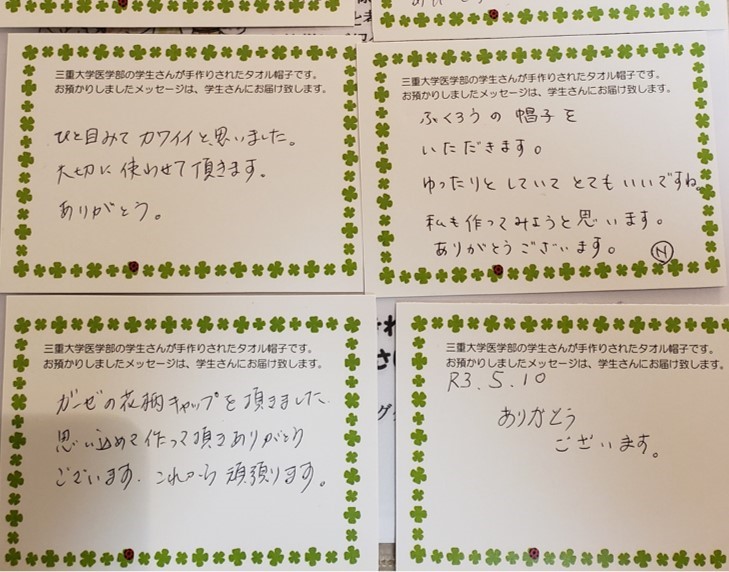 三重大学医学部の学生さんが手作りされたタオル帽子です。
お預かりしましたメッセージは、学生さんにお届け致します。
ひと目みて カワイイと思いました。
大切に 使わせて 頂きます。
ありがとう。
三重大学医学部の学生さんが手作りされたタオル帽子です。
お預かりしましたメッセージは、学生さんにお届け致します。
ふくろうの 帽子を
いただきます。
ゆったりと していて とても いいですね。
私も作ってみようと思います。
ありがとうございます。 N
三重大学医学部の学生さんが手作りされたタオル帽子です。
お預かりしましたメッセージは、学生さんにお届け致します。
ガーゼの花柄キャップを頂きました
思い込めて作って頂きありがとう
ございます. これから 頑張ります。
三重大学医学部の学生さんが手作りされたタオル帽子です。
お預かりしましたメッセージは、学生さんにお届け致します。
R3.5.10
ありがとう
ございます。